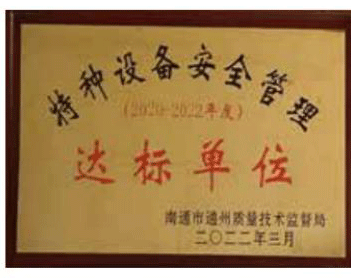 特种设备安全管理
(2020-2022年度)
达标单位
南通市通州质量技术监督局
二〇二二年三月